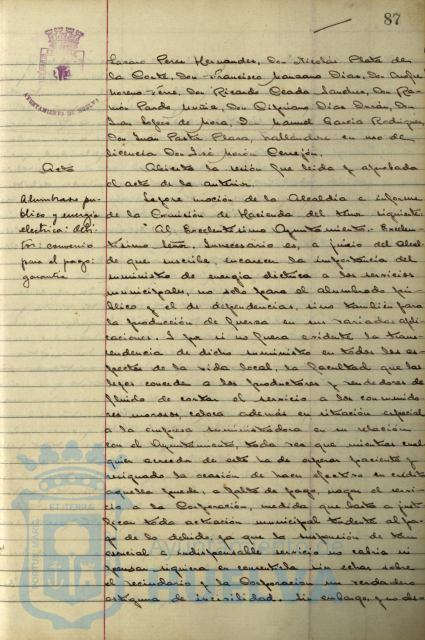 87
AYUNTAMIENTO DE HUELVA
Lazaro Perez Hernandez, Don Nicolás Prata de
la Corte, Don Francisco Manzano Dias, Don André
Moreno, Don Ricardo Ceada Sanchez, Don Ra-
món Pardo Muñiz, Don Cipriano Dias Durán, Don
de Mora, D. Manuel Garcia Rodriguez,
Don Juan hallándose en uso de
licencia Don José Morón Cerrejón.
Acta
Abierta la sesión fue leida y aprobada
el acta de la anterior.
Alumbrado pu-
blico y energia
electrica: debi-
tos: convenio
para el pago:
garantia
Leyose moción de la Alcaldia e informe
de la Comisión de Hacienda del tenor siguiente:
"Al Excelentisimo Ayuntamiento. Excelen-
tisimo Señor. Innecesario es, a juicio del Alcal-
de que suscribe, encarecer la importancia del
suministro de energia electrica a los servicios
municipales, no solo para el alumbrado pú-
blico y el de dependencias, sino también para
la producción de fuerza en sus variadas apli-
caciones. Y por si no fuera evidente la trans-
cendencia de dicho suministro en todos los as-
pectos de la vida local, la facultad que las
leyes conceden a los productores y vendedores de
fluido de cortar el servicio a los consumido-
res morosos, coloca además en situación especial
a la empresa suministradora en su relación
con el Ayuntamiento, toda vez que mientras cual
quier acreedor de este ha de esperar paciente y
resignado la ocasión de hacer efectivo su crédito
aquella puede, a falta de pago, negar el servi-
cio a la Corporación, medida que basta a justi-
ficar toda actuación municipal tendente al pa-
go de lo debido, ya que la suspensión de tan
esencial e indispensable servicio no cabria ni
pensar siquiera en consentirla sin echar sobre
el vecindario y la Corporación un verdadero
estigma de incivilidad. Sin embargo, y no obs-